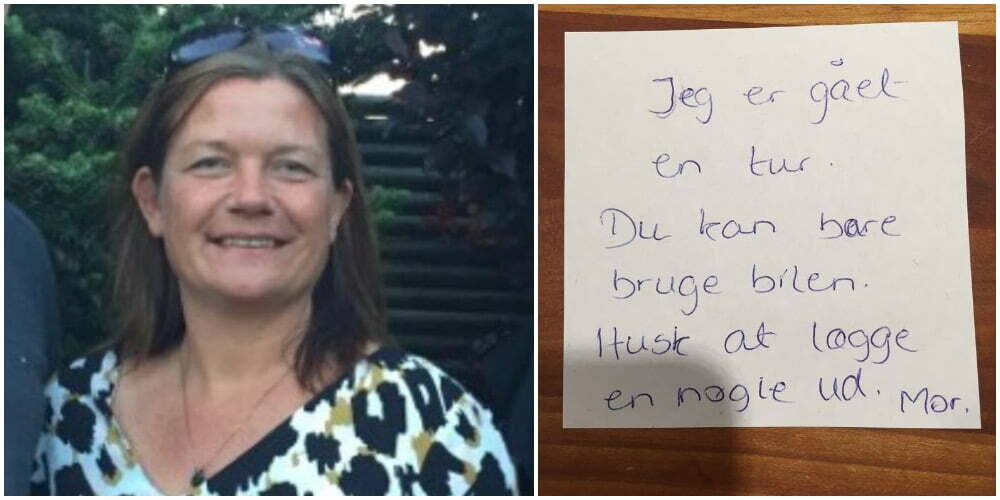 Jeg er gået
en tur.
Du kan bare
bruge bilen.
Husk at lægge
en nøgle ud. Mor.